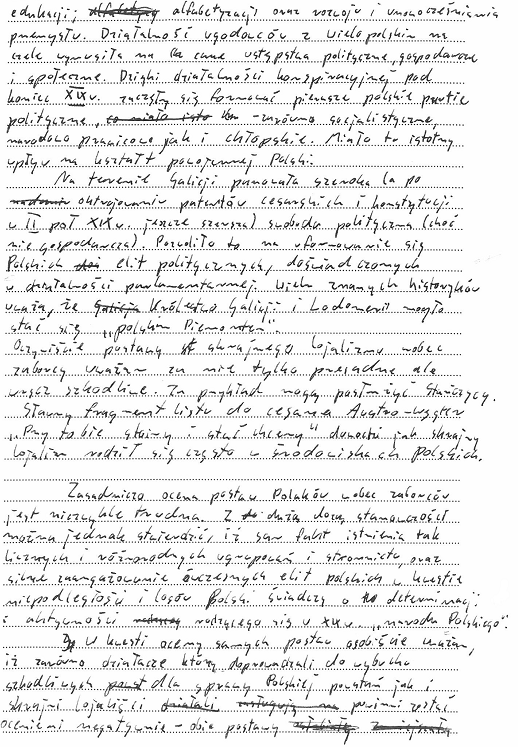 edukacji; alfabetyzacji oraz rozwoju i unowocześniania
przemysłu. Działalność ugodowców z Wielopolskim na
czele wymusiła na carze ustępstwa polityczne, gospodarcze
i społeczne. Dzięki działalności konspiracyjnej pod
koniec XIX w. zaczęły się formować pierwsze polskie partie
polityczne, - zarówno socjalistyczne,
narodowo prawicowe jak i chłopskie. Miało to istotny
wpływ na kształt powojennej Polski.
Na terenie Galicji panowała szeroka (a po
oktrojowaniu patentów cesarskich i konstytucji
w II poł XIX w. jeszcze szersza) swoboda polityczna (choć
nie gospodarcza). Pozwoliło to na uformowanie się
Polskich elit politycznych, doświadczonych
w działalności parlamentarnej. Wielu znanych historyków
uważa, że Królestwo Galicji i Lodomerii mogło
stać się „polskim Piemontem".
Oczywiście postawy skrajnego lojalizmu wobec
zaborcy uważam za nie tylko przesadne ale
wręcz szkodliwe. Za przykład mogą posłużyć Stańczycy.
Sławny fragment listu do cesarza Austro-Węgier
„Przy tobie stoimy i stać chcemy" dowodzi jak skrajny
lojalizm rodził się często w środowiskach Polskich.
Zasadnicza ocena postaw Polaków wobec zaborców
jest niezwykle trudna. Z dużą dozą stanowczości
można jednak stwierdzić, iż sam fakt istnienia tak
licznych i różnorodnych ugrupowań i stronnictw, oraz
silne zaangażowanie ówczesnych elit polskich w kwestie
niepodległości i losów Polski świadczy o determinacji
i aktywności rodzącego się w XIX w. „narodu Polskiego".
W kwestii oceny samych postaw osobiście uważam,
iż zarówno działacze którzy doprowadzali do wybuchu
szkodliwych dla sprawy Polskiej powstań jak i
skrajni lojaliści powinni zostać
ocenieni negatywnie - obie postawy